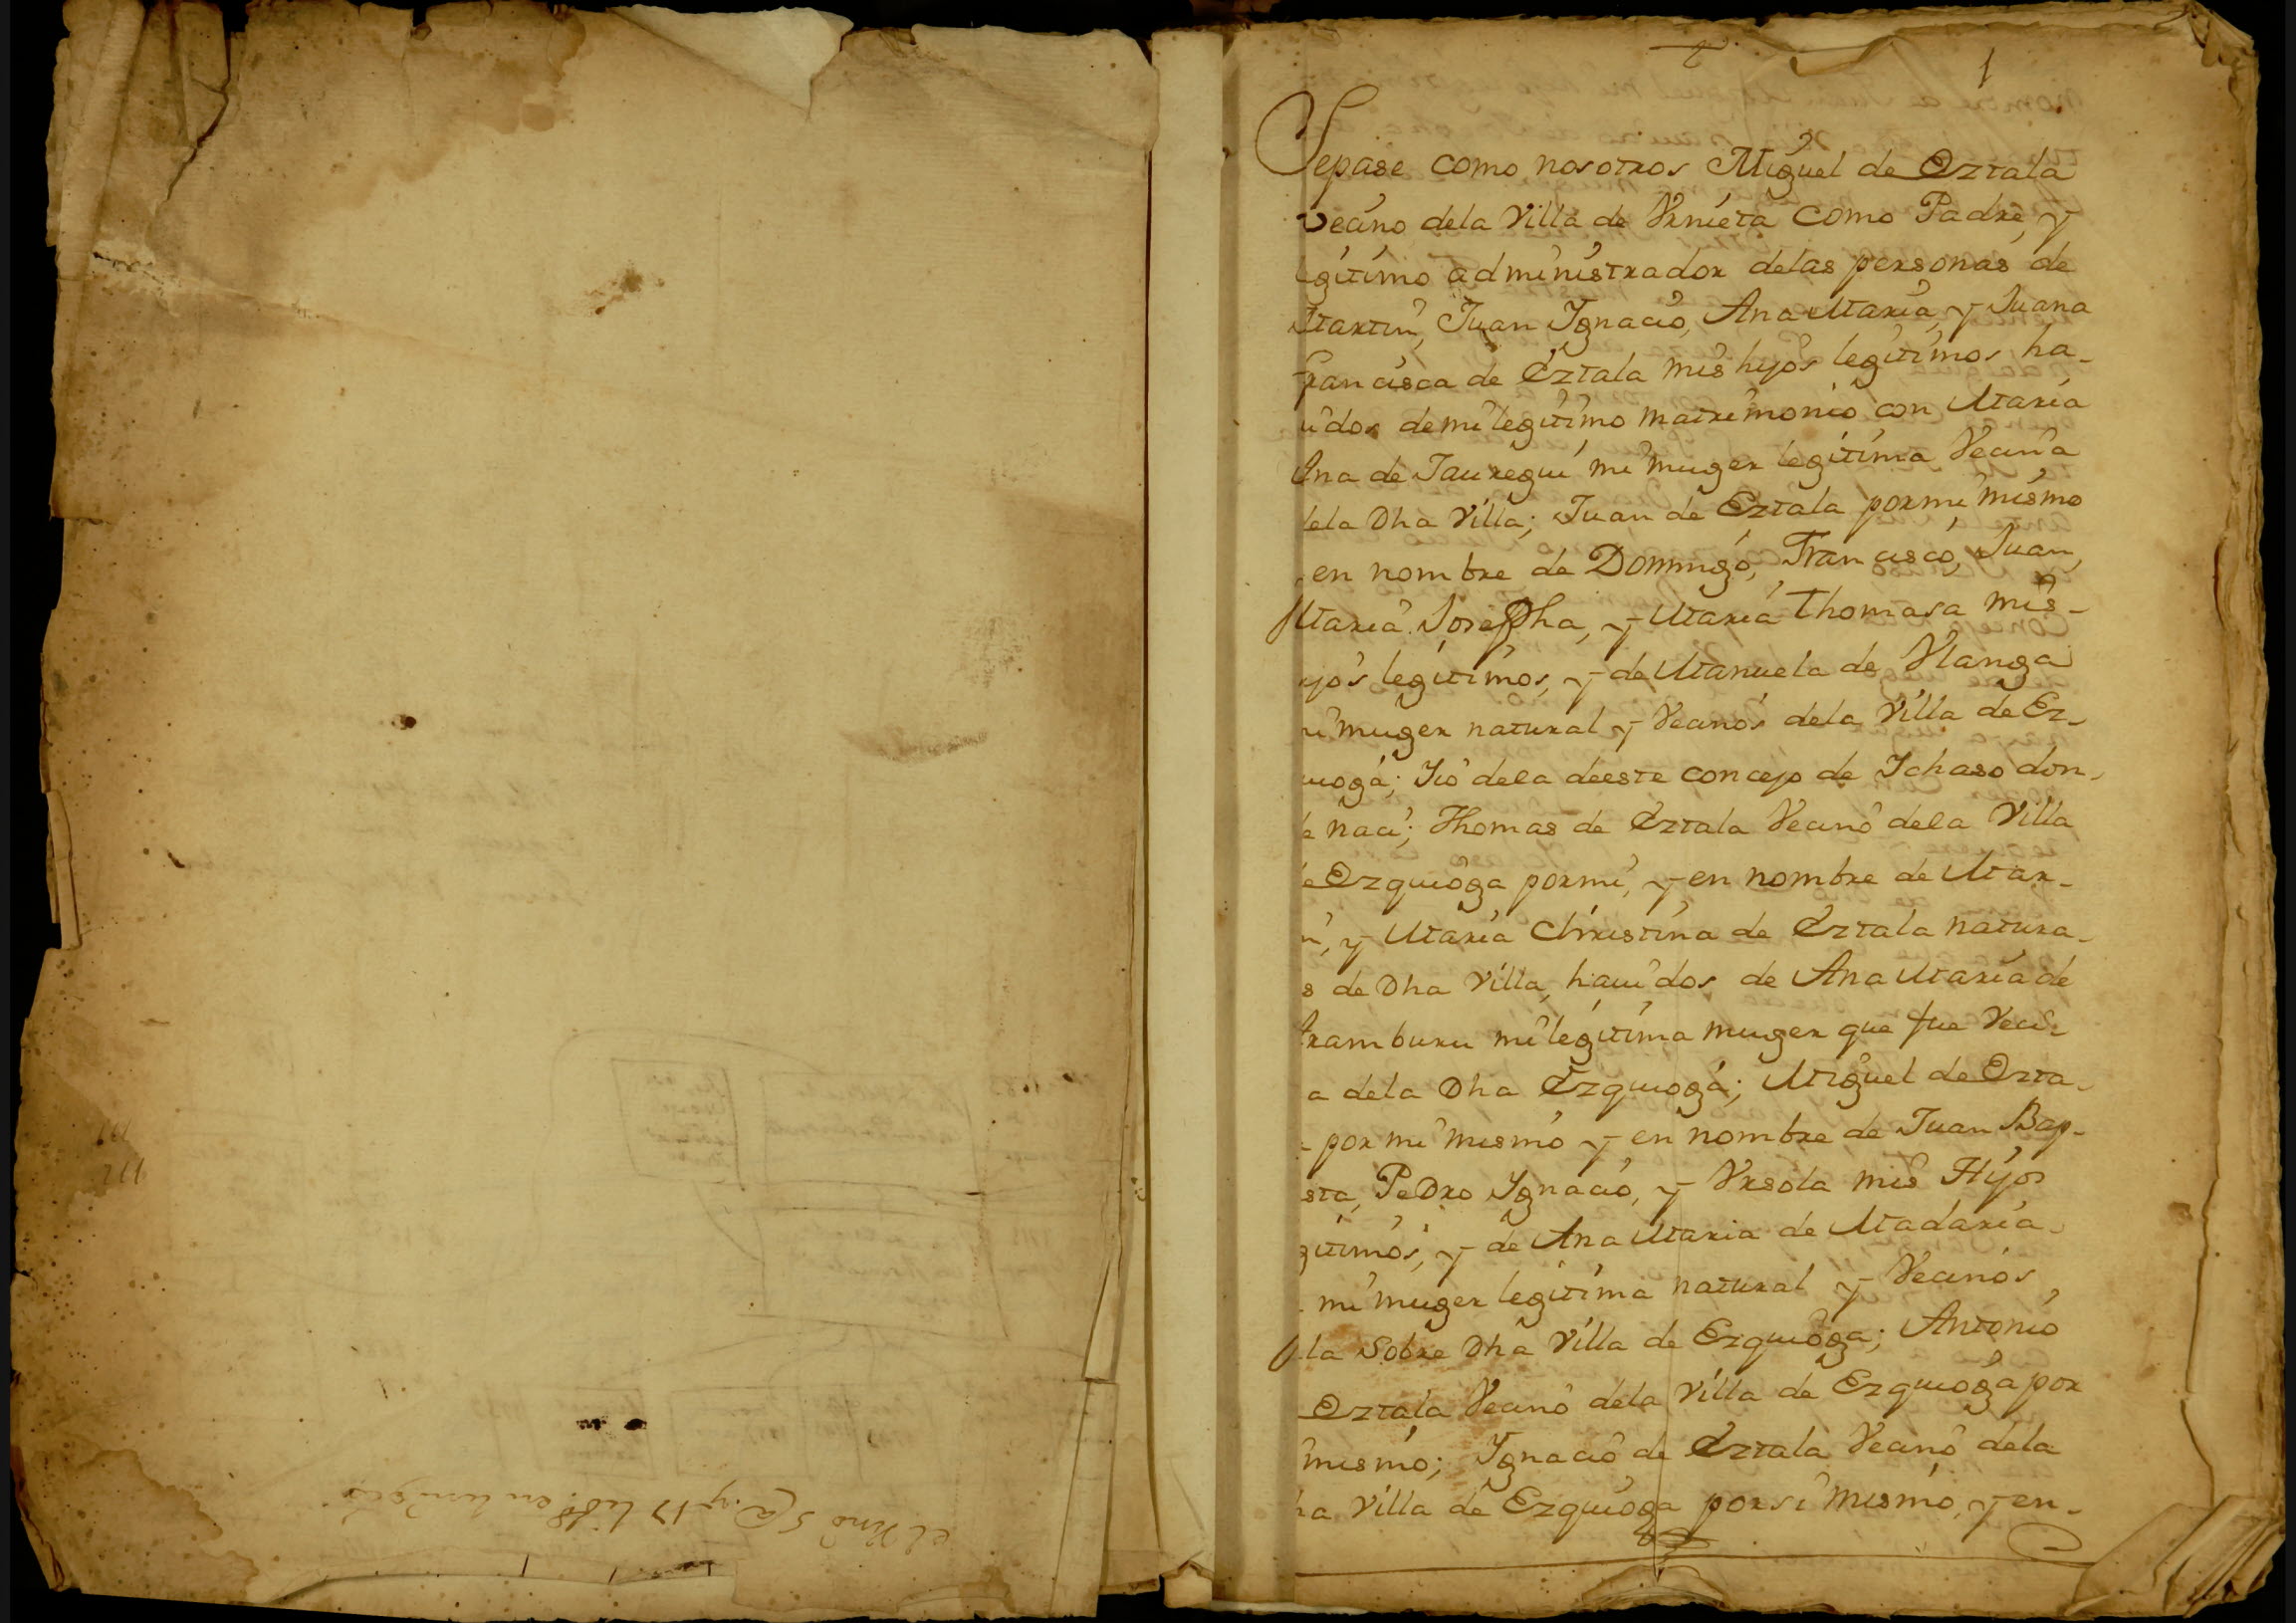 1
Sepase como nosotros Miguel de Eztala
Vecino dela Villa de Vrnieta como Padre, y
gitimo administrador delas personas de
Martin, Juan Ygnacio, Ana Maria, y Juana
Francisca de Eztala mis hijos legitimos ha-
uidos de mi legitimo matrimonio con Maria
Ana de Jauregui mi muger legitima Vecina
dela Dha Villa; Juan de Eztala por mi mismo
en nombre de Domingo, Francisco, Juan,
Maria Josepha, y Maria Thomasa mis-
ijos legitimos, y de Manuela de Vlanga
mi muger natural y Vecinos dela Villa de Ez-
uioga; Yio dela deeste concejo de Ychaso don-
de naci; Thomas de Eztala Vecino dela Villa
de Ezquioga por mi, y en nombre de Mar-
n, y Maria Christina de Eztala natura-
s de Dha Villa, hauidos de Ana Maria de
Aramburu mi legitima muger que fue Veci-
a dela Dha Ezquioga; Miguel de Ezta-
por mi mismo y en nombre de Juan Bap-
sta, Pedro Ygnacio, y Vrsola mis Hijos
gitimos, y de Ana Maria de Madaria-
mi muger legitima natural y Vecinos
la Sobre Dha Villa de Ezquioga; Antonio
Eztala Vecino dela Villa de Ezquioga por
mismo; Ygnacio de Eztala Vecino dela
ha Villa de Ezquioga por si mismo, y en-